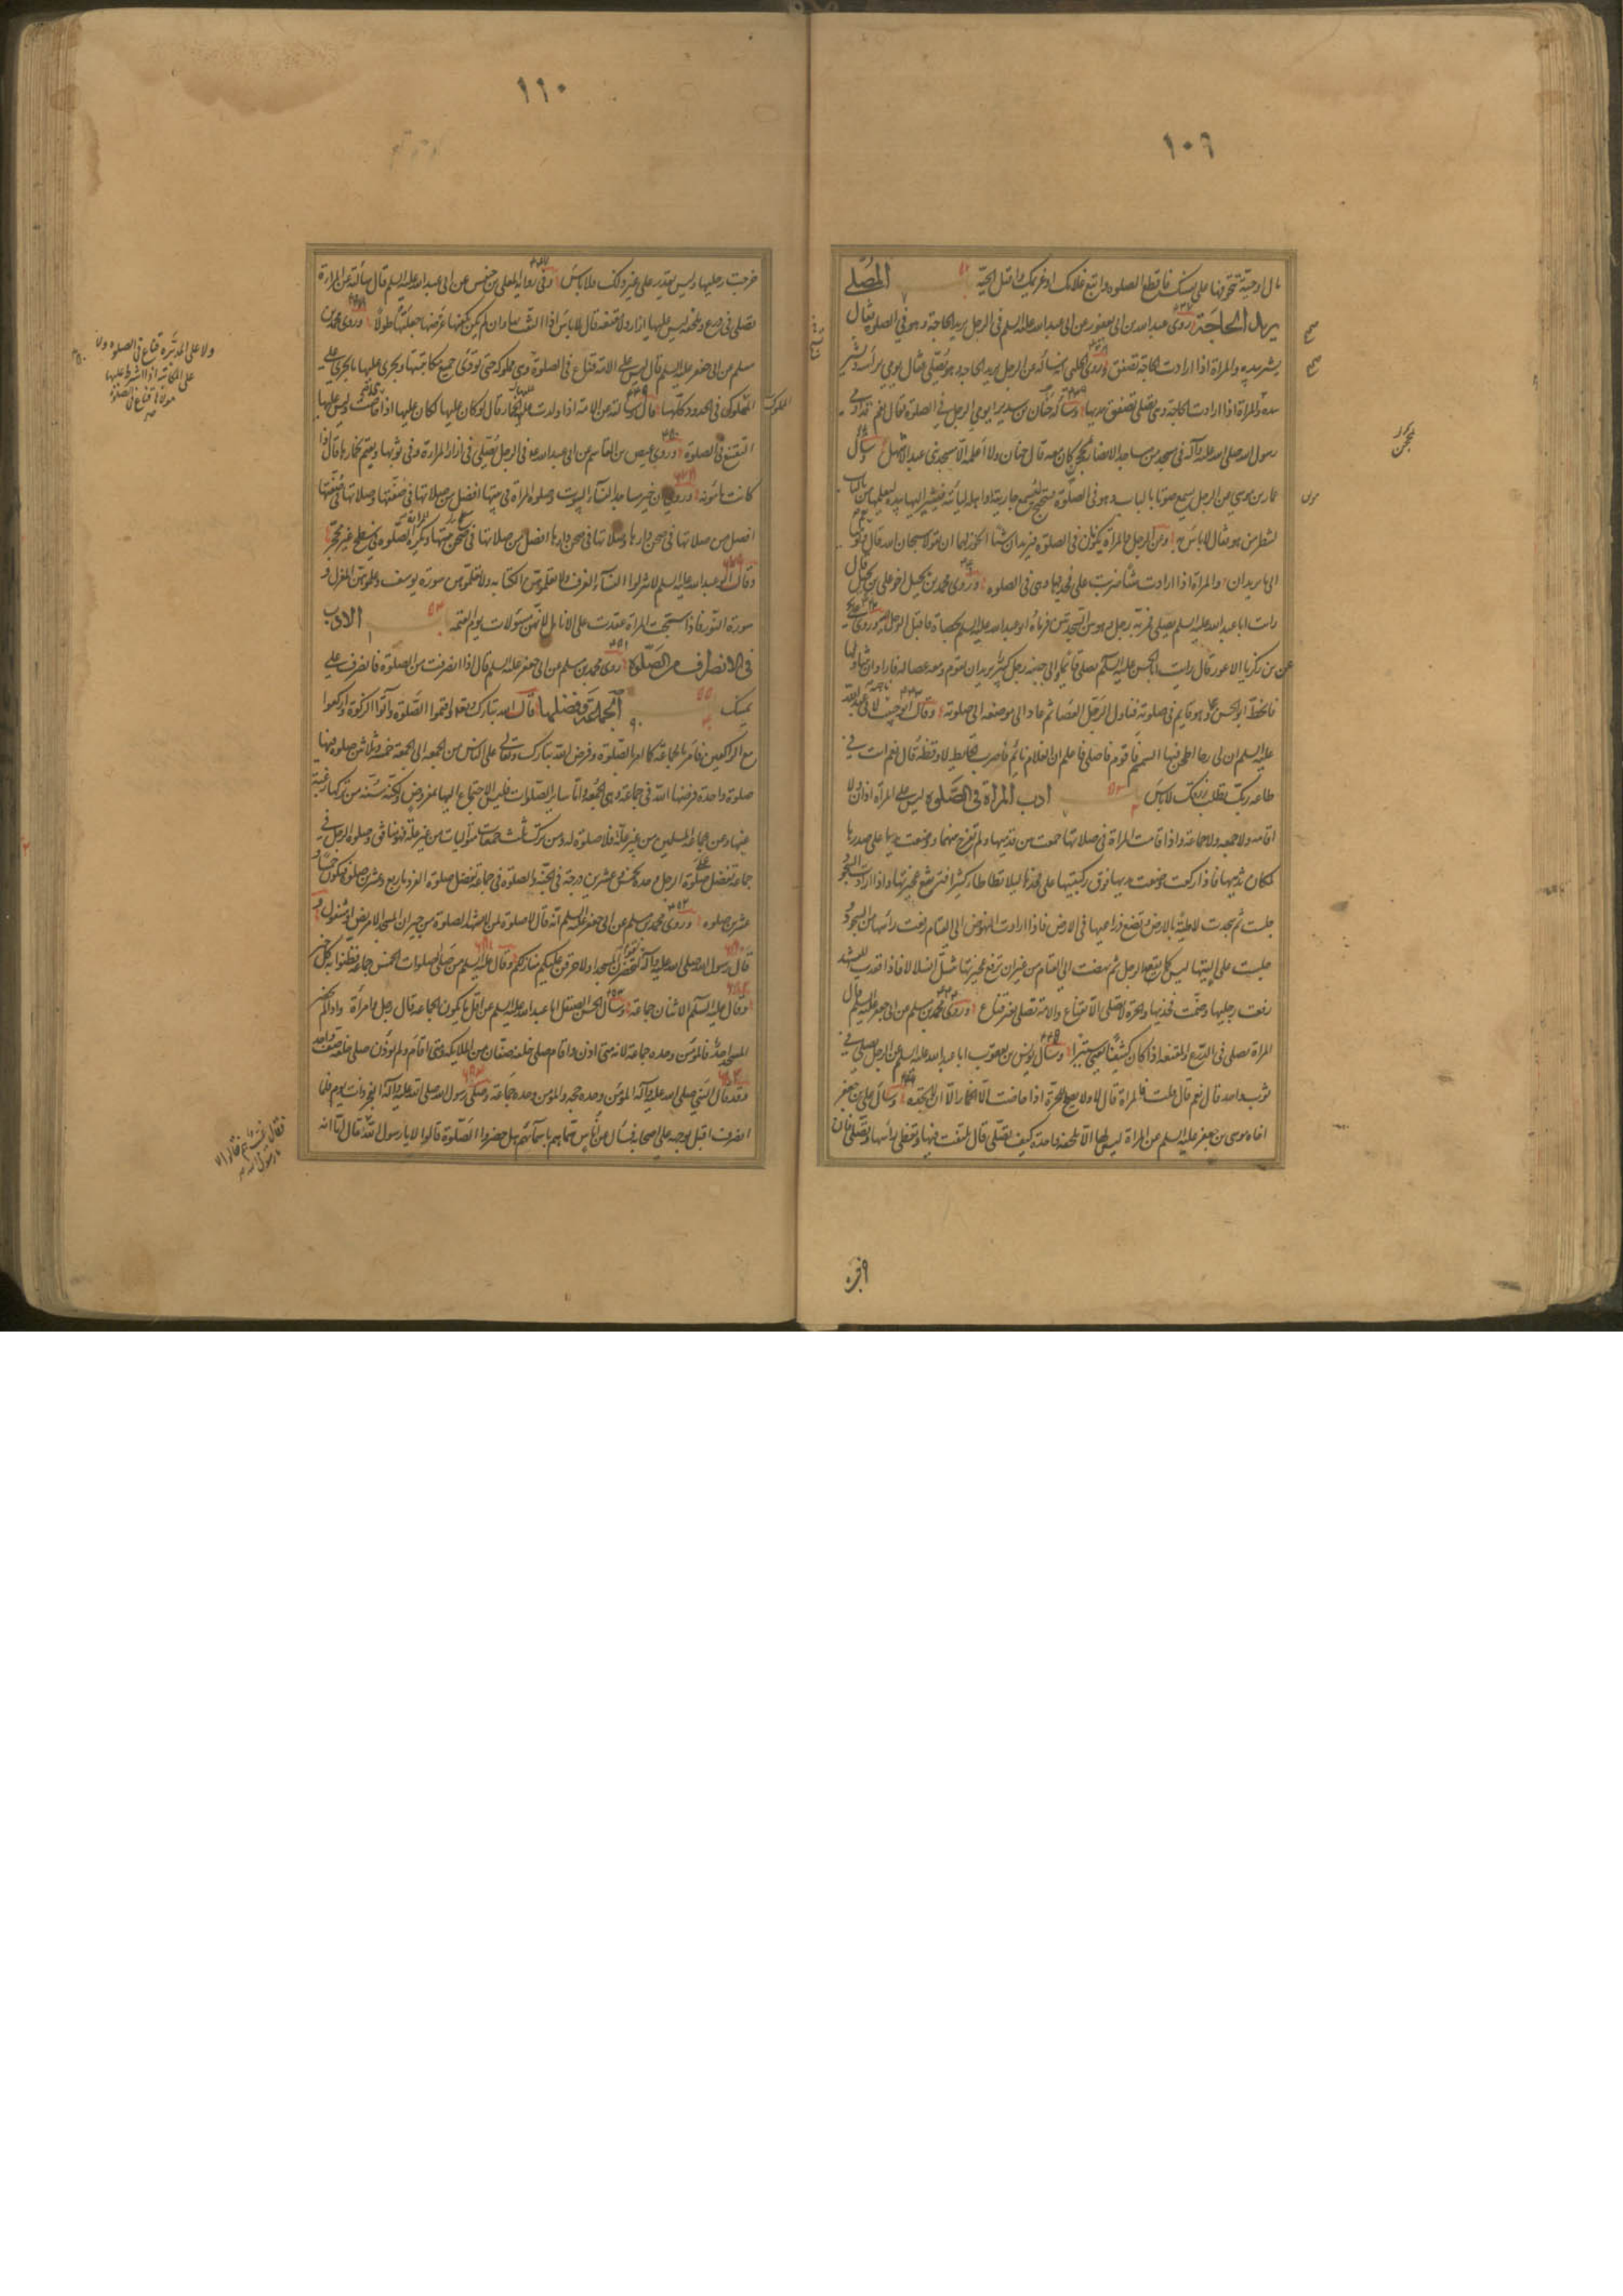 ١٠٩
مال او حية تتخوفها على نفسك فاقطع الصلوة واتبع غلامك او غريمك واقتل الحية المصلي
يريد الحاجة روى عبدالله بن ابي يعفور عن ابي عبدالله عليه السلم في الرجل يريد الحاجة وهو في الصلوة فقال
يشير بيده والمراة اذا ارادت الحاجة تصفق وروى الحلبي انه سأله عن الرجل يريد الحاجة وهو يصلي فقال يومي برأسه ويشير
بيده والمراة اذا ارادت الحاجة وهي تصلي تصفق بيديها وسأله حنان بن سدير ايومي الرجل في الصلوة فقال نعم قد اومى
رسول الله صلى الله عليه وآله في مسجد من مساجد الانصار بمحجن كان معه قال حنان ولا اعلمه الا مسجد بني عبد الاشهل وسأل
عمار بن موسى عن الرجل يسمع صوتا بالباب وهو في الصلوة فيتنحنح لتسمع جاريته او اهله لتأتيه فيشير اليها بيده ليعلمها من بالباب
لتنظر من هو فقال لا باس به وعن الرجل والمراة يكونان في الصلوة فيريدان شيئا ايجوز لهما ان يقولا سبحان الله قال نعم و
الى ما يريدان والمراة اذا ارادت شيئا ضربت على فخذيها وهي في الصلوة وروى محمد بن بجيل اخو علي بن بجيل قال
رايت ابا عبدالله عليه السلم يصلي فمر به رجل وهو بين السجدتين فرماه ابو عبدالله عليه السلم بحصاة فاقبل الرجل اليه وروى
عن بن زكريا الاعور قال رايت ابا الحسن عليه السلم يصلي قائما والى جنبه رجل كبير يريد ان يقوم ومعه عصا له فاراد ان يتناولها
فانحط ابو الحسن وهو قايم في صلوته فناول الرجل العصا ثم عاد الى موضعه الى صلوته وقال ابو حبيب لابي عبدالله
عليه السلم ان لي رحا اطحن فيها السمسم فاقوم فاصلي فاعلم ان الغلام نائم فاضرب الحايط لاوقظه قال نعم انت في
طاعة ربك تطلب رزقك لا باس ادب المراة في الصلوة ليس على المراة اذان ولا
اقامة ولا جمعة ولا جماعة واذا قامت المراة في صلاتها جمعت بين قدميها ولم تفرج بينهما ووضعت يديها على صدرها
لمكان ثدييها فاذا ركعت وضعت يديها فوق ركبتيها على فخذها ليلا تطاطا كثيرا فترتفع عجيزتها واذا ارادت السجود
جلست ثم سجدت لاطئة بالارض وتضع ذراعيها في الارض فاذا ارادت النهوض الى القيام رفعت رأسها من السجود و
جلست على اليتيها ليس كما يقعد الرجل ثم نهضت الى القيام من غير ان ترفع عجيزتها تنسل انسلالا فاذا قعدت للتشهد
رفعت رجليها وضمت فخذيها والحرة لا تصلي الا بقناع والامة تصلي بغير قناع وروى محمد بن مسلم عن ابي جعفر عليه السلم قال
المراة تصلي في الدرع والمقنعة اذا كان كثيفا يعني ستيرا وسأل يونس بن يعقوب ابا عبدالله عليه السلم عن الرجل يصلي في
ثوب واحد قال نعم قال قلت فالمراة قال لا ولا يصلح للحرة اذا حاضت الا الخمار الا ان لا تجده وسأل علي بن جعفر
اخاه موسى بن جعفر عليه السلم عن المراة ليس لها الا ملحفة واحدة كيف تصلي قال تلتف فيها وتغطي رأسها وتصلي فان
صح
صح
محجن
١١٠
خرجت رجليها وليس تقدر على غير ذلك فلا باس وفي رواية المعلى بن خنيس عن ابي عبدالله عليه السلم قال سألته عن المراة
تصلي في درع وملحفة ليس عليها ازار ولا مقنعة قال لا باس اذا التفت بها وان لم يكن تكفيها عرضا جعلتها طولا وروى محمد بن
مسلم عن ابي جعفر عليه السلم قال ليس على الامة قناع في الصلوة
وهي مملوكة حتى تؤدي جميع مكاتبتها ويجري عليها ما يجري على
المملوك في الحدود كلها قال وسألته عن الامة اذا ولدت عليها الخمار قال لو كان عليها لكان عليها اذا حاضت وليس عليها
التقنع في الصلوة وروى عيص بن القاسم عن ابي عبدالله في الرجل يصلي في ازار المراة وفي ثوبها ويعتم بخمارها قال اذا
كانت مأمونة وروي ان خير مساجد النساء البيوت وصلوة المراة في بيتها افضل من صلاتها في صفتها وصلاتها في صفتها
افضل من صلاتها في صحن دارها وصلاتها في صحن دارها افضل من صلاتها في سطح بيتها وتكره للمراة الصلوة في سطح غير محجر
وقال ابو عبدالله عليه السلم لا تنزلوا النساء الغرف ولا تعلموهن الكتابة ولا تعلموهن سورة يوسف وعلموهن المغزل و
سورة النور فاذا سبحت المراة عقدت على الانامل لانهن مسؤلات يوم القيمة الادب
في الانصراف من الصلوة روى محمد بن مسلم عن ابي جعفر عليه السلم قال اذا انصرفت من الصلوة فانصرف على
يمينك الجماعة وفضلها قال الله تبارك وتعالى واقيموا الصلوة وآتوا الزكوة واركعوا
مع الراكعين فامر بالجماعة كما امر بالصلوة وفرض الله تبارك وتعالى على الناس من الجمعة الى الجمعة خمسة وثلاثين صلوة فيها
صلوة واحدة فرضها الله في جماعة وهي الجمعة واما ساير الصلوات فليس الاجتماع اليها بمفروض ولكنه سنة من تركها رغبة
عنها وعن جماعة المسلمين من غير علة فلا صلوة له ومن ترك ثلث جمعات متواليات من غير علة فهو منافق وصلوة الرجل في
جماعة تفضل على صلوة الرجل وحده بخمس وعشرين درجة في الجنة والصلوة في جماعة تفضل صلوة الفرد باربع وعشرين صلوة فتكون خمسا و
عشرين صلوة وروى محمد بن مسلم عن ابي جعفر عليه السلم انه قال لا صلوة لمن لا يشهد الصلوة من جيران المسجد الا مريض او مشغول و
قال رسول الله صلى الله عليه وآله لقوم لتحضرن المسجد او لاحرقن عليكم منازلكم وقال عليه السلم من صلى الصلوات الخمس جماعة فظنوا به كل خير
وقال عليه السلم الاثنان جماعة وسأل الحسن الصيقل ابا عبدالله عليه السلم عن اقل ما يكون الجماعة قال رجل وامراة واذا لم يحضر
المسجد احد فالمؤمن وحده جماعة لانه متى اذن واقام صلى خلفه صفان من الملايكة ومتى اقام ولم يؤذن صلى خلفه صف واحد
وقد قال النبي صلى الله عليه وآله المؤمن وحده حجة والمؤمن وحده جماعة وصلى رسول الله صلى الله عليه وآله الفجر ذات يوم فلما
انصرف اقبل بوجهه على اصحابه فسأل عن اناس يسميهم باسمائهم هل حضروا الصلوة قالوا لا يا رسول الله قال اما انه
المملوك
ولا على المدبرة قناع في الصلوة ولا
على المكاتبة اذا اشترط عليها
مولاها قناع في الصلوة